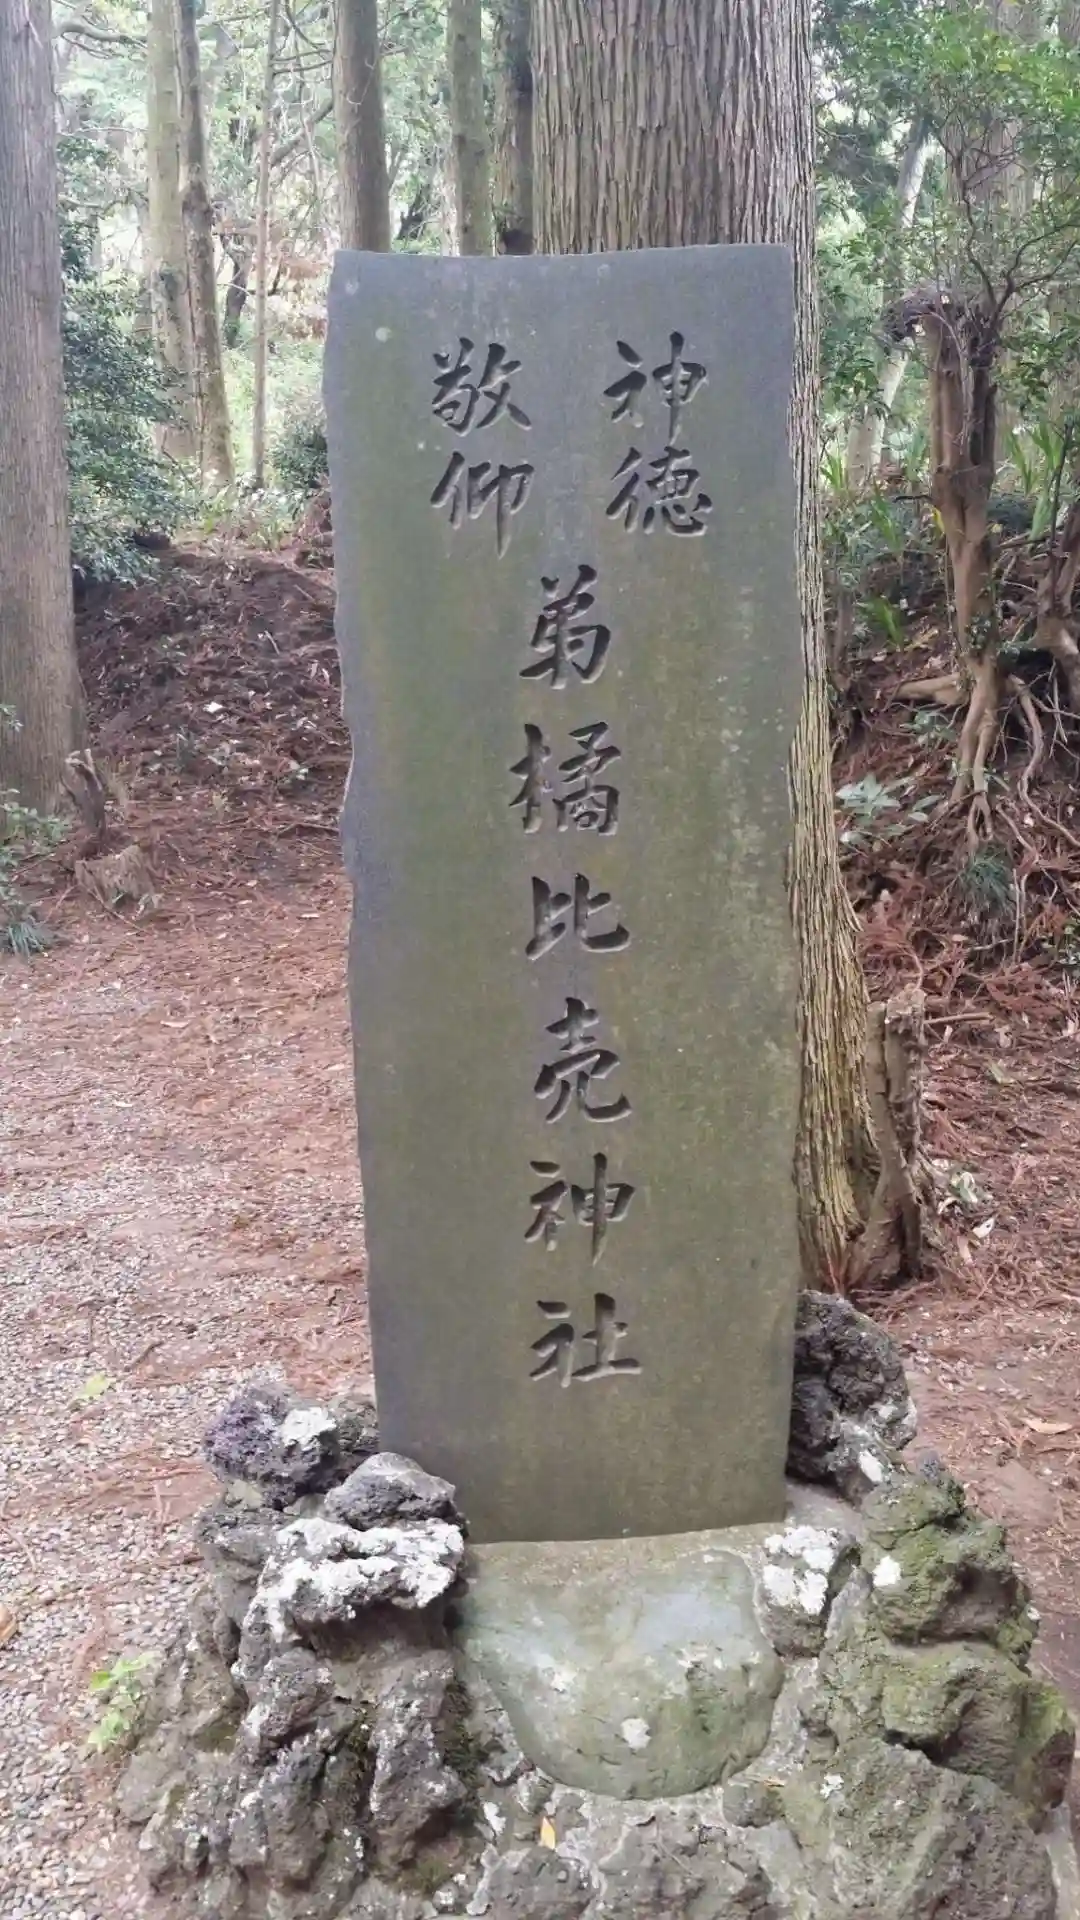 神徳
敬仰
弟橘比売神社